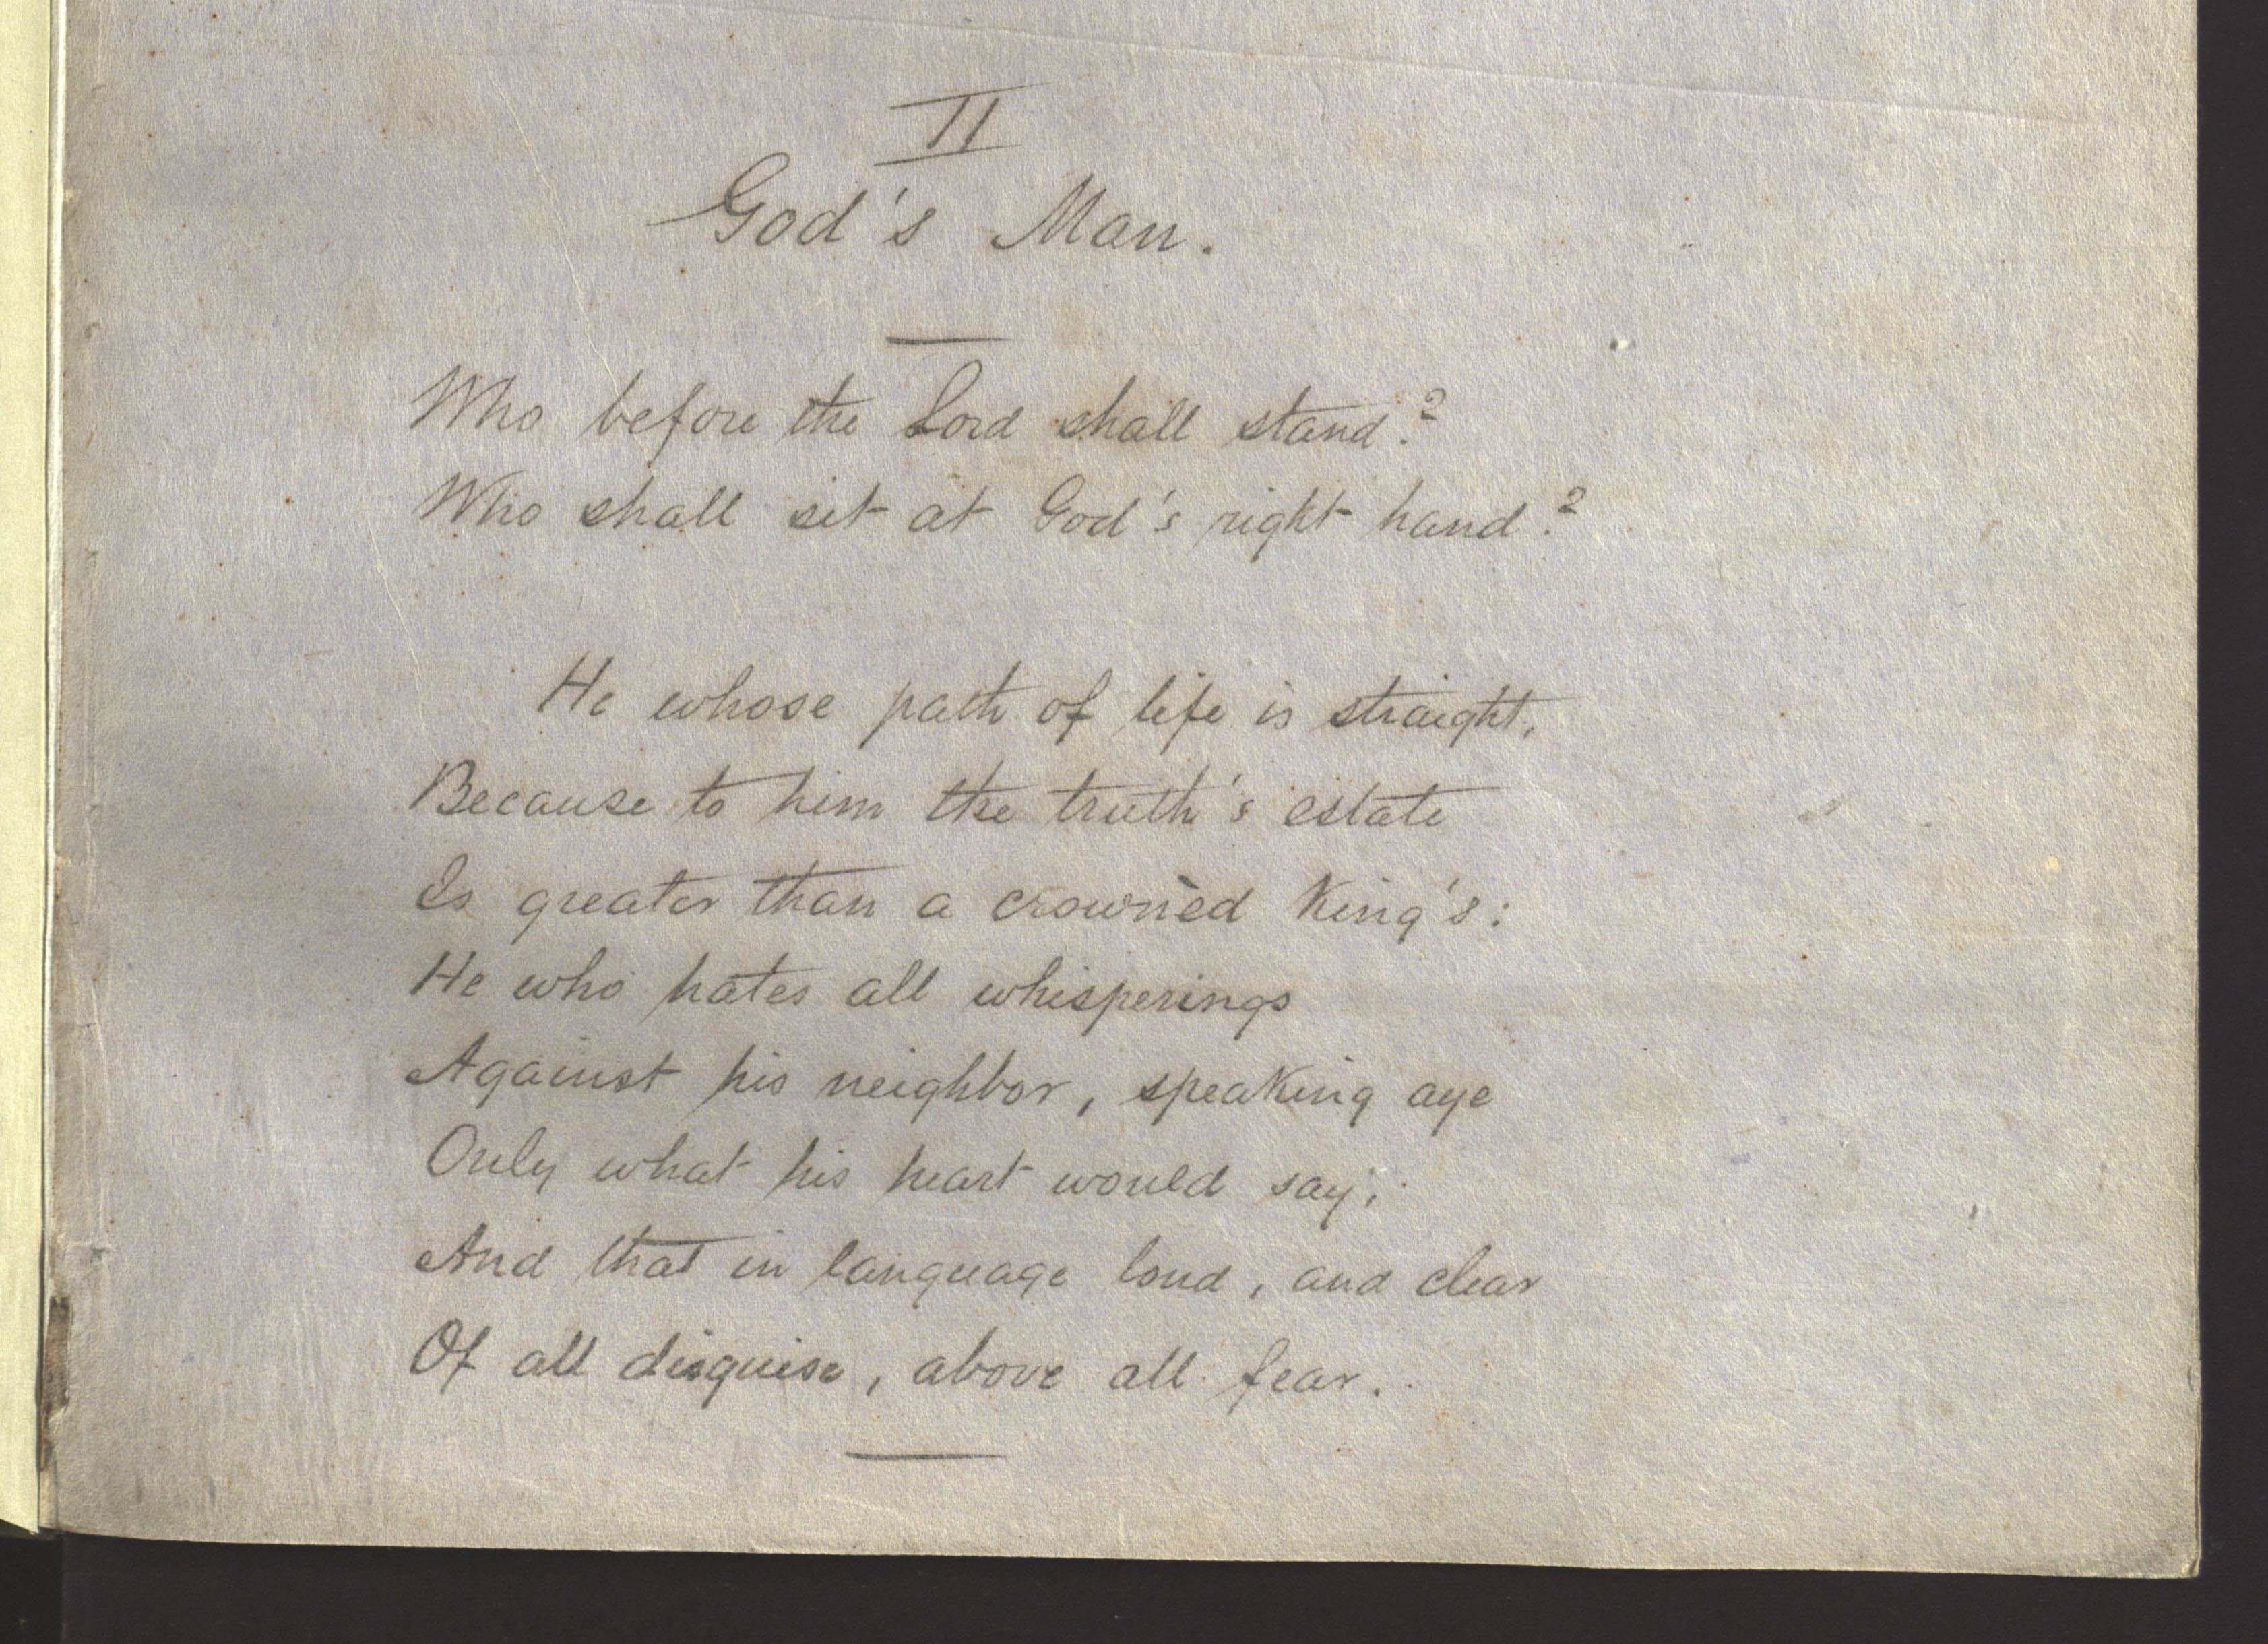 II
God's Man.
Who before the Lord shall stand?
Who shall sit at God's right hand?
He whose path of life is straight,
Because to him the truth's estate
Is greater than a crownèd King's:
He who hates all whisperings
Against his neighbor, speaking aye
Only what his heart would say;
And that in language loud, and clear
Of all disguise, above all fear.